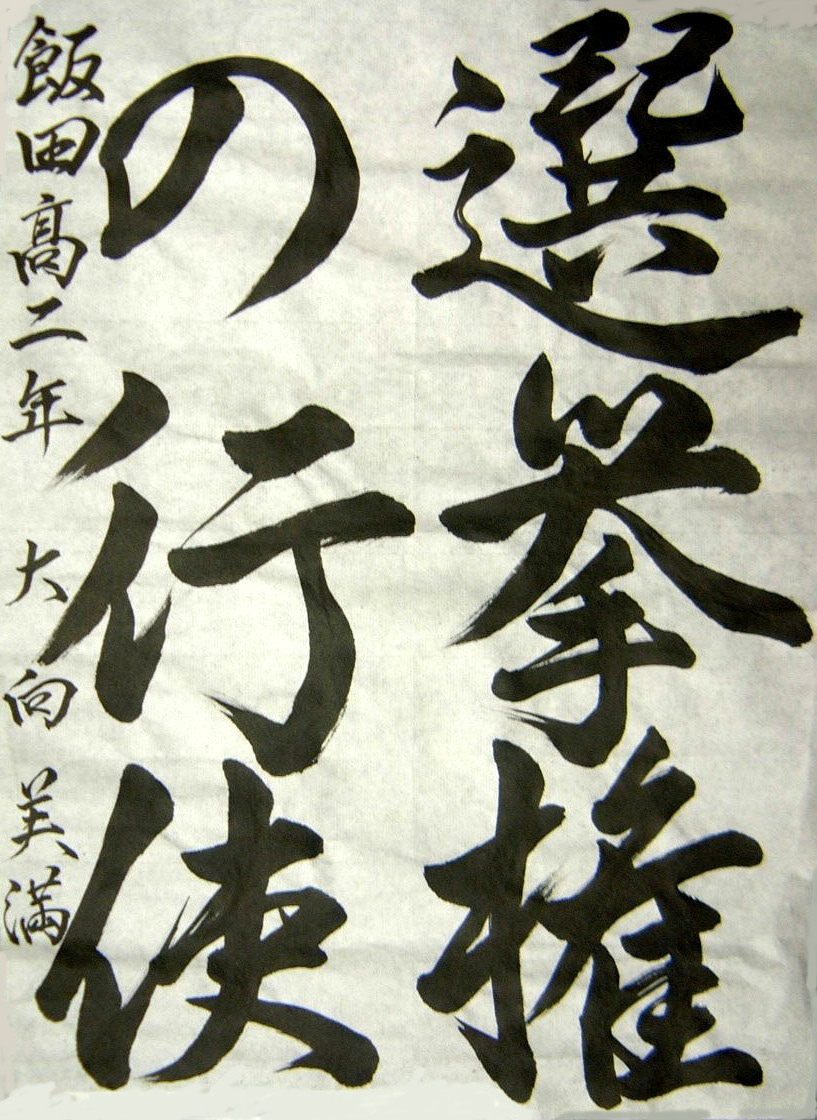 選挙権
の行使
飯田高二年 大向 美満